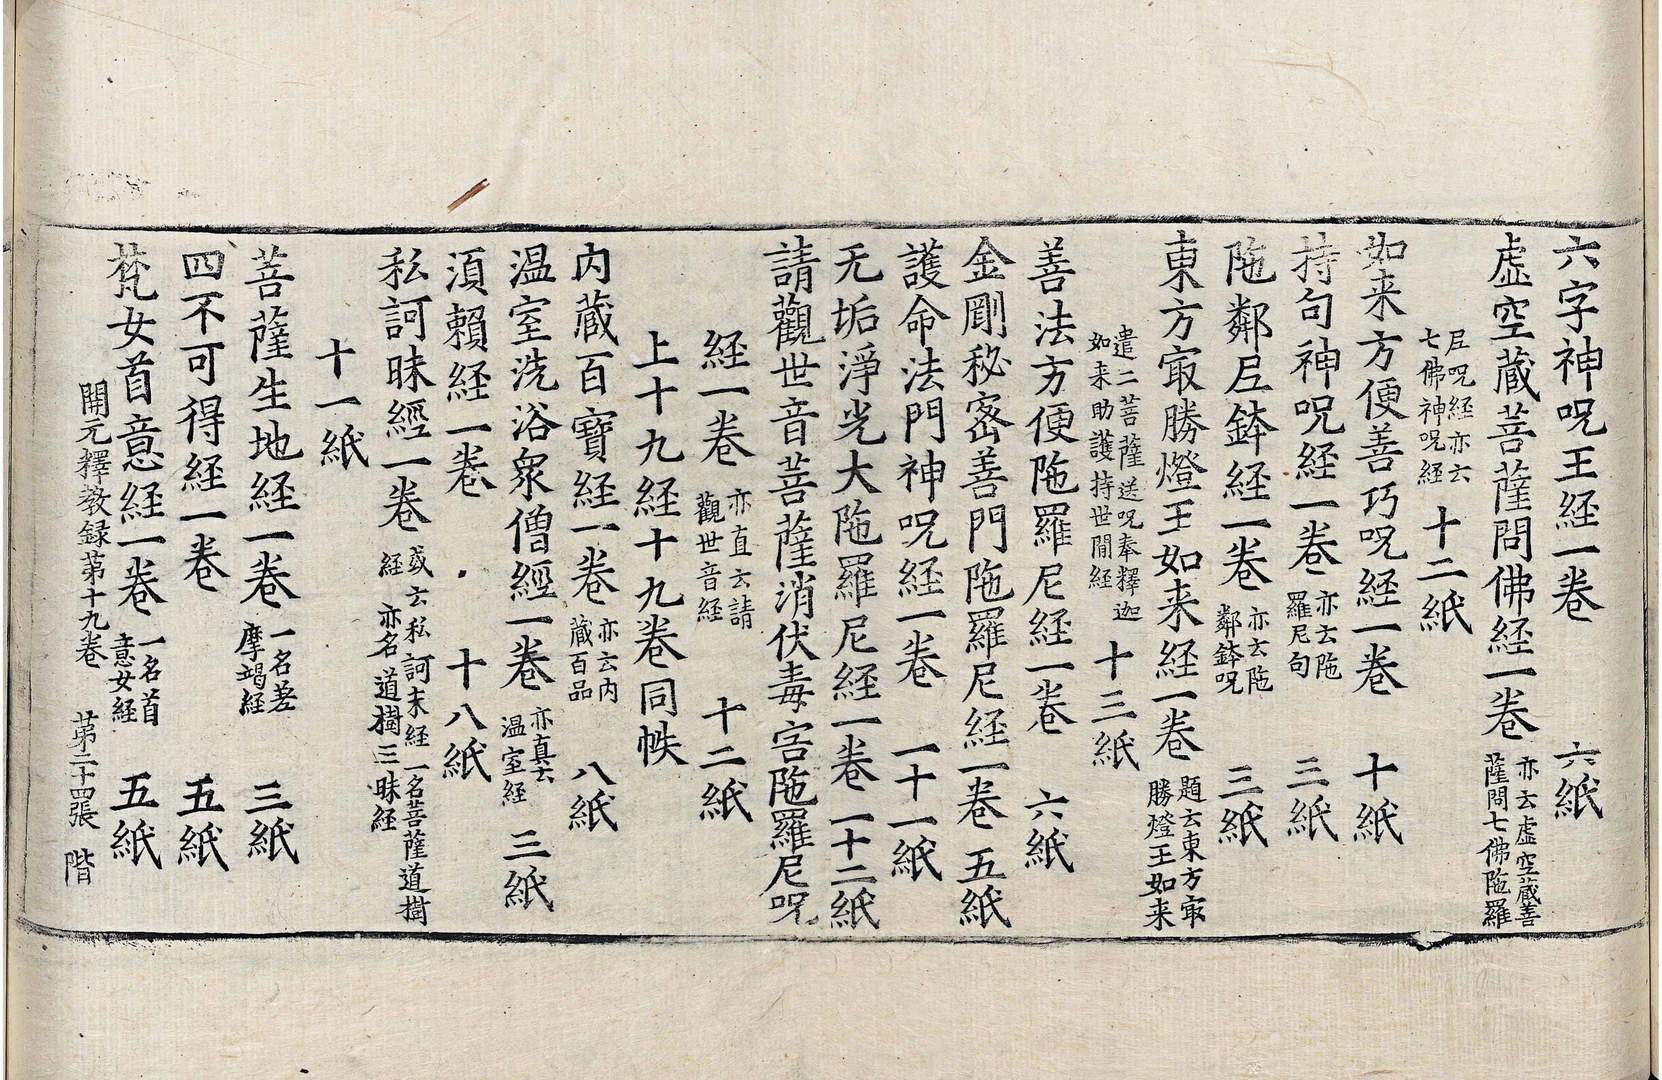 六字神呪王経一巻 六紙
虚空蔵菩薩問佛経一巻 亦云虚空蔵菩
薩問七佛陁羅
尼呪経亦云
七佛神呪経 十二紙
如来方便善巧呪経一巻 十紙
持句神呪経一巻 亦云陁
羅尼句 三紙
陁鄰尼鉢経一巻 亦云陁
鄰鉢呪 三紙
東方㝡勝燈王如来経一巻 題云東方㝡
勝燈王如来
遣二菩薩送呪奉釋迦
如来助護持世間経 十三紙
善法方便陁羅尼経一巻 六紙
金剛秘宻善門陁羅尼経一巻 五紙
護命法門神呪経一巻 一十一紙
无垢淨光大陁羅尼経一巻 一十二紙
請觀世音菩薩消伏毒害陁羅尼呪
経一巻 亦直云請
觀世音経 十二紙
上十九経十九巻同帙
内蔵百寶経一巻 亦云内
蔵百品 八紙
温室洗浴衆僧經一巻 亦真云
温室経 三紙
湏賴経一巻 十八紙
私訶昧經一巻 或云私訶末経一名菩薩道樹
経 亦名道樹三昧経
十一紙
菩薩生地経一巻 一名差
摩竭経 三紙
四不可得経一巻 五紙
梵女首意経一巻 一名首
意女経 五紙
開元釋教録苐十九巻 苐二十四張 階